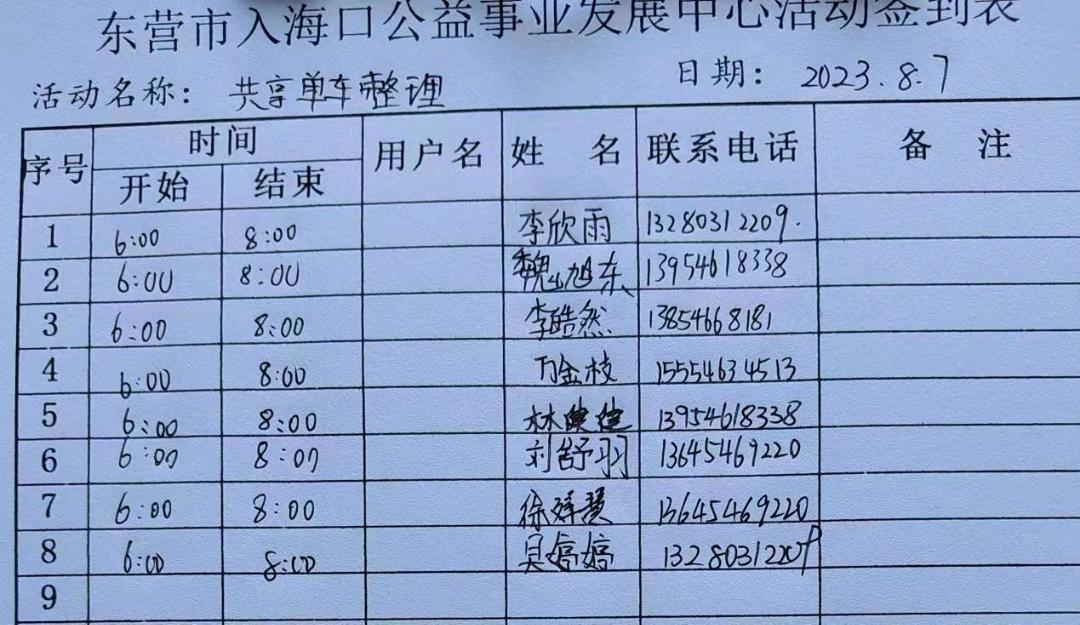 东营市入海口公益事业发展中心活动签到表
活动名称: 共享单车整理 日期: 2023.8.7
序号 时间 用户名 姓 名 联系电话 备 注
开始 结束
1 6:00 8:00 李欣雨 13280312209.
2 6:00 8:00 魏旭东 13954618338
3 6:00 8:00 李皓然 13854668181
4 6:00 8:00 万金枝 15554634513
5 6:00 8:00 林 13954618338
6 6:00 8:00 刘舒羽 13645469220
7 6:00 8:00 徐 慧 13645469220
8 6:00 8:00 吴婷婷 13280312209
9